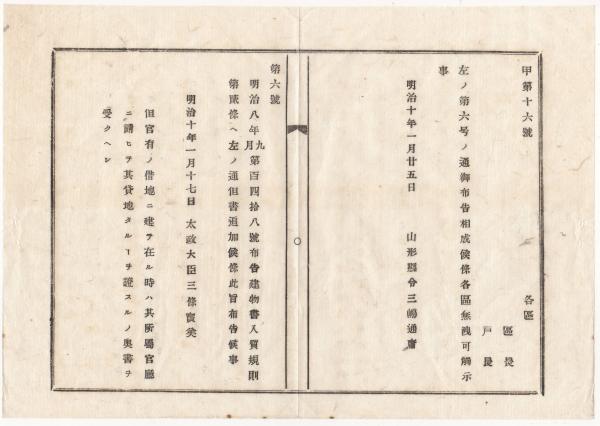 甲第十六號
各區
區長
戸長
左ノ第六号ノ通御布告相成候條各區無洩可觸示
事
明治十年一月廿五日 山形縣令三嶋通庸
第六號
明治八年九月第百四拾八號布告建物書入質規則
第貳條ヘ左ノ通但書追加候條此旨布告候事
明治十年一月十七日 太政大臣三條實美
但官有ノ借地ニ建テ在ル時ハ其所屬官廳
ニ請ヒテ其貸地タルヿヲ證スルノ奥書ヲ
受クヘシ